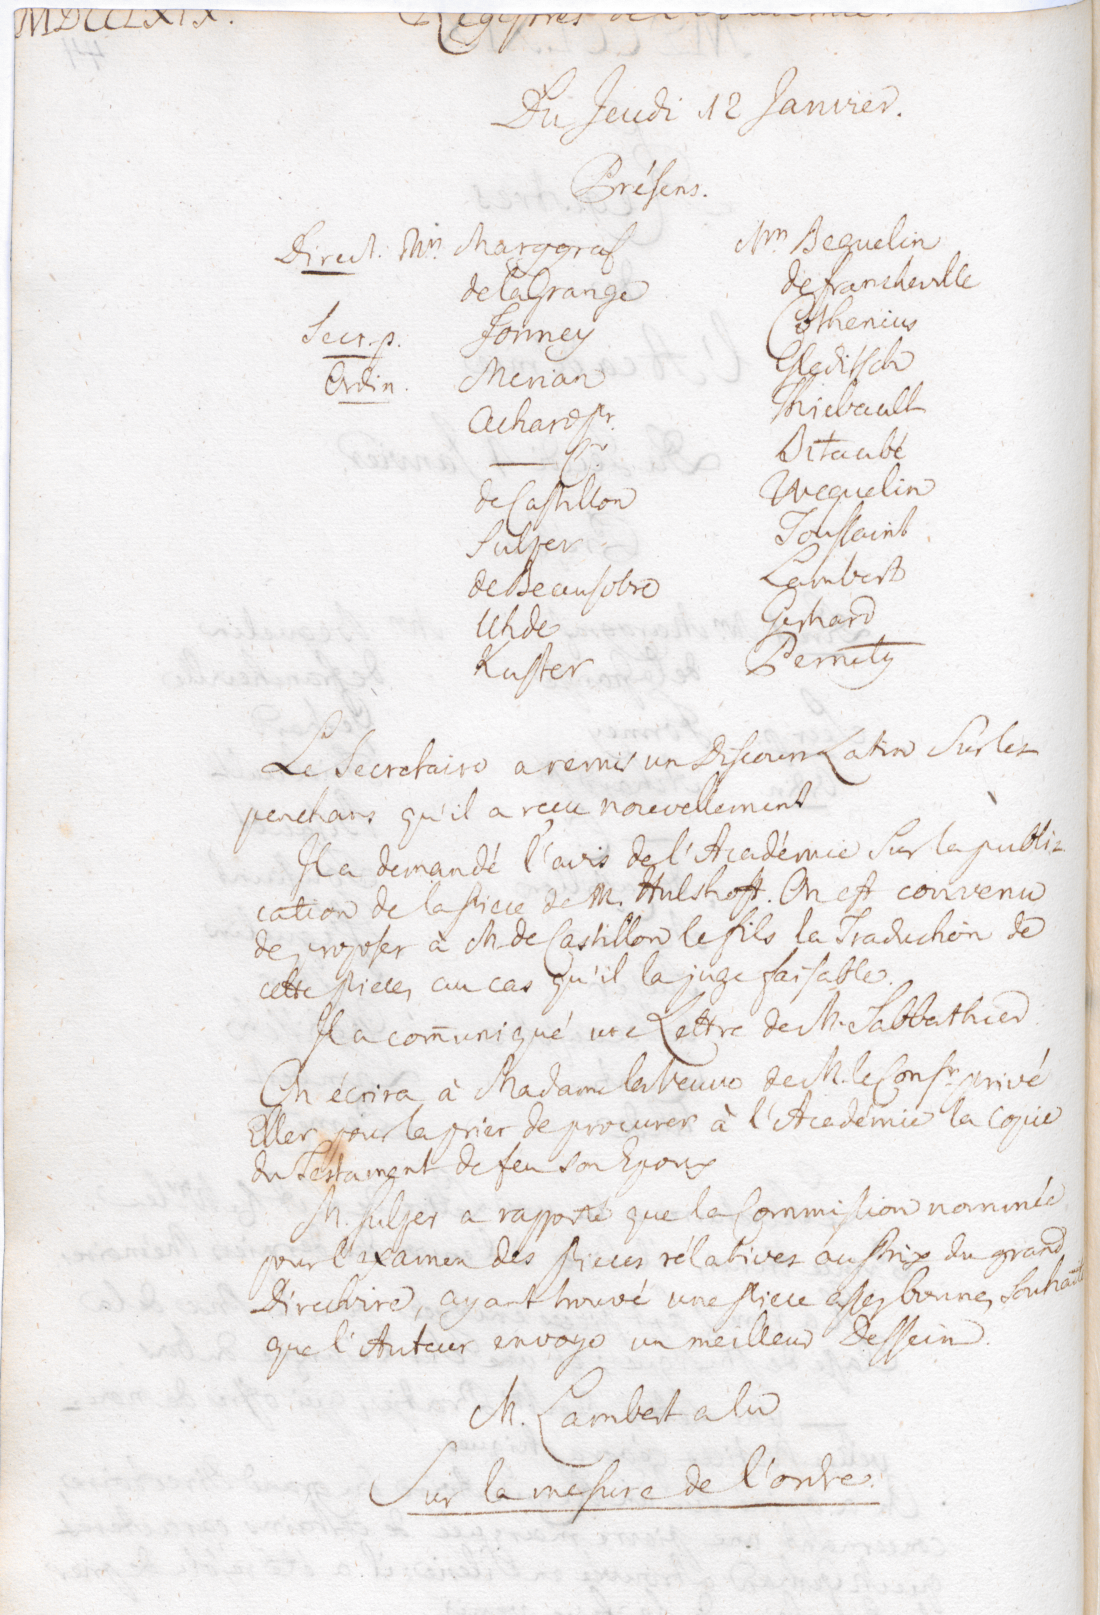 MDCCLXIX. Registres de l'Académie.
Du Jeudi 12 Janvier.
Présens.
Direct. Mrs. Marggraf Mrs. Beguelin
de la Grange de Francheville
Secr. p. Formey Cothenius
Ordin. Merian Gleditsch
Achard Pr. Thiebault
—— Fr. Bitaubé
de Castillon Weguelin
Sulzer Toussaint
de Beausobre Lambert
Uhde Gerhard
Kuster Pernety
Le Secretaire a remis un Discours Latin Sur les
penchans qu'il a recu nouvellement
Il a demandé l'avis de l'Académie Sur la publi-
cation de la Piece de M. Hulshoff. On est convenu
de proposer à M. de Castillon le fils la Traduction de
cette Piece, au cas qu'il la juge faisable.
Il a com̄uniqué une Lettre de M. Sabbathier
On écrira à Madame la Veuve de M. le Consr. privé
Eller pour la prier de procurer à l'Académie la Copie
du Testament de feu son Epoux
M. Sulzer a rapporté que la Commission nommée
pour l'examen des Pieces rélatives au Prix du grand
Directoire, ayant trouvé une Piece assez bonne, Souhaite
que l'Auteur envoye un meilleur Dessein.
M. Lambert a lu
Sur la mesure de l'ordre.